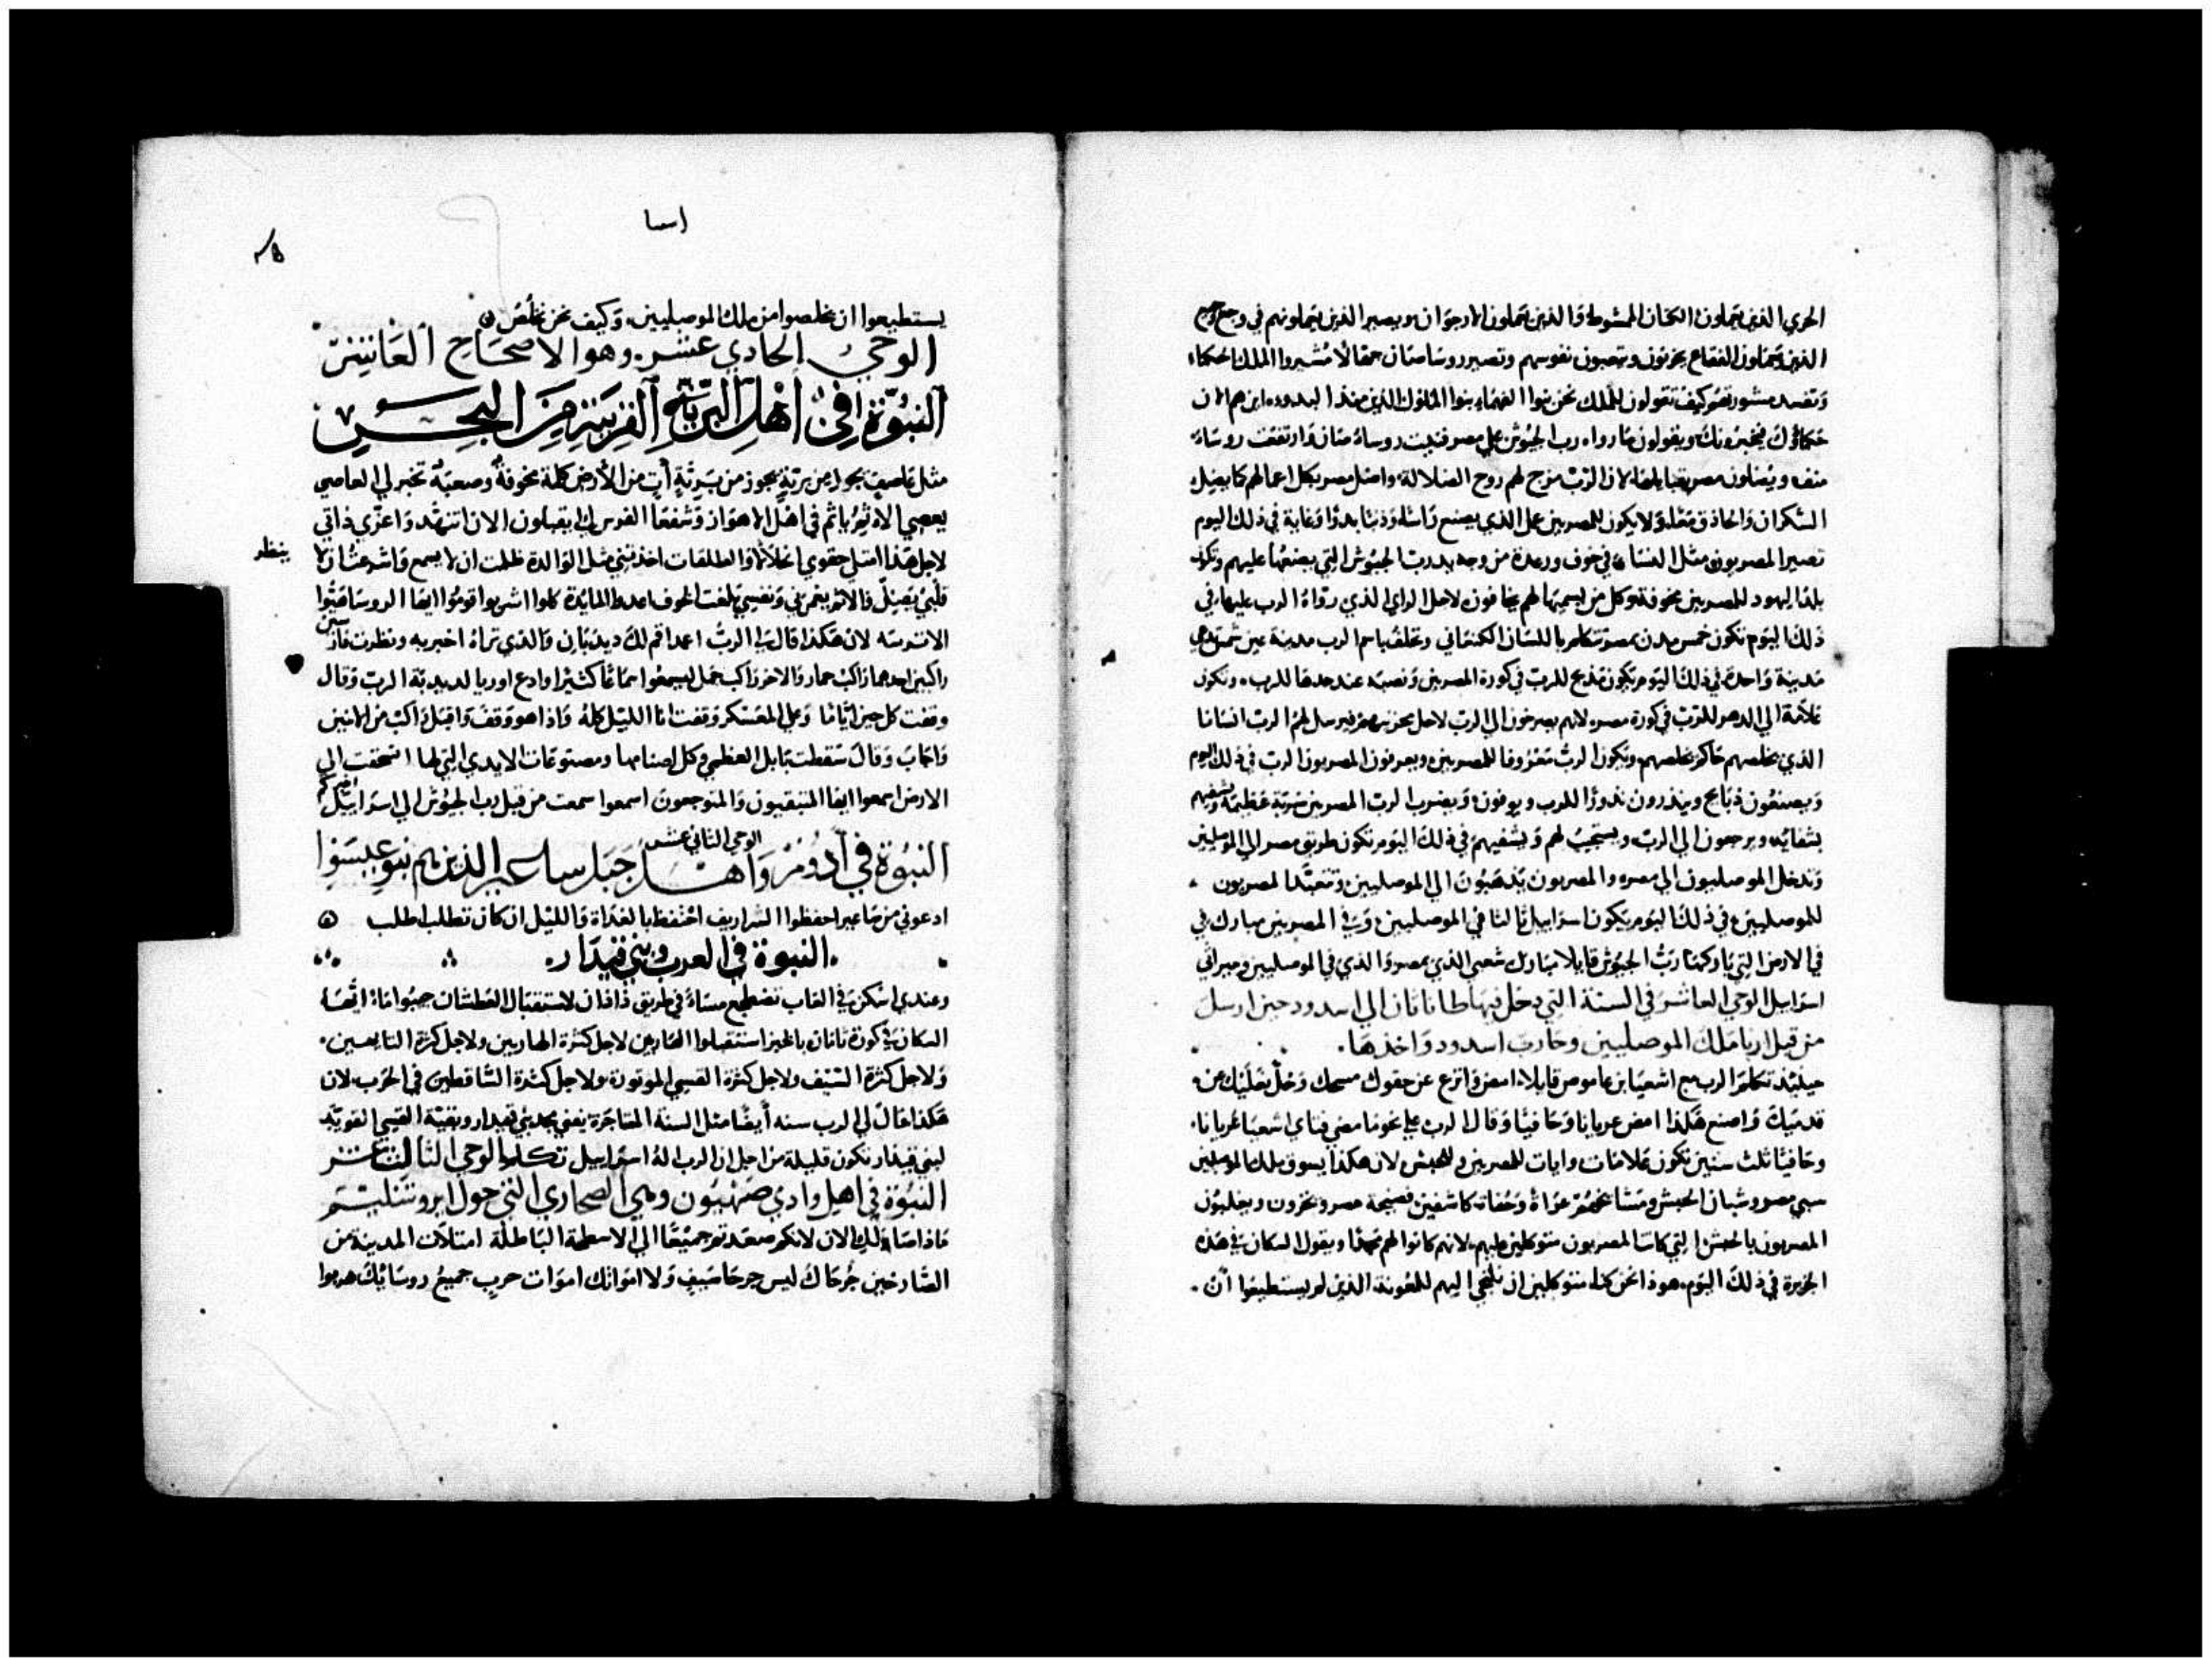 الحزي الذين يعملون الكتان المشوط والذين يعملون الارجوان ويصير الذين يعملونهم في وجع وجميع
الذين يعملون الفقاع يحزنون ويتعبون نفوسهم وتصير روسا صان جهالا مشيروا الملك الحكماء
وتفسد مشورتهم كيف تقولون للملك نحن بنوا الفهماء بنوا الملوك الذين منذ البدو اين هم الان
حكماؤك فيخبرونك ويقولون ماذا رواه رب الجيوش علي مصر فنيت روساء صان وارتفعت روساء
منف ويضلون مصر قبايلها لان الرب مزج لهم روح الضلالة واضل مصر بكل اعمالهم كما يضل
السكران والحاذق معا ولا يكون للمصريين عمل الذي يصنع راسا وذنبا بدوا وغاية في ذلك اليوم
تصير المصريون مثل النساء في خوف ورعدة من وجه يد رب الجيوش التي يضعها عليهم وتكون
بلد اليهود للمصريين مخوفة وكل من يسميها لهم يخافون لاجل الراي الذي رواه الرب عليها في
ذلك اليوم تكون خمس مدن بمصر تتكلم باللسان الكنعاني وتحلف باسم الرب مدينة عين شمس تدعي
مدينة واحدة في ذلك اليوم يكون مذبح للرب في كورة المصريين ونصبه عند حدها للرب وتكون
علامة الي الدهر للرب في كورة مصر لانهم يصرخون الي الرب لاجل محزنيهم فيرسل لهم الرب انسانا
الذي يخلصهم حاكم يخلصهم ويكون الرب معروفا للمصريين ويعرفون المصريون الرب في ذلك اليوم
ويصنعون ذبايح وينذرون نذورا للرب ويوفون ويضرب الرب المصريين ضربة عظيمة ويشفيهم
بشفائه ويرجعون الي الرب ويستجيب لهم ويشفيهم في ذلك اليوم تكون طريق مصر الي الموصليين
وتدخل الموصليون الي مصر والمصريون يذهبون الي الموصليين وتتعبد المصريون
للموصليين في ذلك اليوم يكون اسراييل ثالثا في الموصليين وفي المصريين مبارك في
في الارض التي باركها رب الجيوش قايلا مبارك شعبي الذي بمصر والذي في الموصليين وميراثي
اسراييل الوحي العاشر في السنة التي دخل فيها طاناتان الي اسدود حين ارسل
من قبل ارنا ملك الموصليين وحارب اسدود واخذها
حينيذ تكلم الرب مع اشعيا بن عاموص قايلا امض وانزع عن حقوك مسحك وحل نعليك عن
قدميك واصنع هكذا امض عريانا وحافيا وقال الرب علي نحو ما مضي فتاي اشعيا عريانا
وحافيا ثلث سنين تكون علامات وايات للمصريين وللحبش لان هكذا يسوق ملك الموصليين
سبي مصر وشبان الحبش ومشايخهم عراة وحفاة كاشفين فضيحة مصر ويخزون ويغلبون
المصريون بالحبش التي كانت المصريون متوكلين عليهم لانهم كانوا لهم مجدا ويقول السكان في هذه
الجزيرة في ذلك اليوم هوذا نحن كنا متوكلين ان نلتجي اليهم للمعونة الذين لم يستطيعوا ان
اسا
يستطيعوا ان يخلصوا من ملك الموصليين وكيف نحن نخلص
الوحي الحادي عشر وهو الاصحاح العاشر
النبوة في اهل البرية القريبة من البحر
مثل عاصف يجوز من برية يجوز من برية آت من الارض كلمة مخوفة وصعبة تخبر لي العاصي
يعصي الاثيم ياثم في اهل الاهواز وشفعا الفرس لي يقبلون الان اتنهد واعزي ذاتي
لاجل هذا امتلي حقوي انحلالا والطلقات اخذتني مثل الوالدة ظلمت ان لا يسمع واسرعت ان لا
ينظر
قلبي يضل والاثم يغمرني ونفسي بلغت الخوف اعدد المايدة كلوا اشربوا قوموا ايها الروسا هيوا
الاترسه لان هكذا قال لي الرب امض اقم لك ديدبان والذي تراه اخبر به ونظرت فارسين
راكبين احدهما راكب حمار والاخر راكب جمل ليسمعوا سماعا كثيرا وادع اوريا لديدبة الرب وقال
وقفت كل حين ايامنا وعلي المعسكر وقفت انا الليل كله واذا هو وقف واقبل راكب من اثنين
واجاب وقال سقطت بابل العظمي وكل اصنامها ومصنوعات الايدي التي لها انسحقت الي
الارض اسمعوا ايها المتبقيون والمتوجعون اسمعوا سمعت من قبل رب الجيوش الي اسراييل اخبركم
الوحي الثاني عشر
النبوة في ادوم واهل جبل ساعير الذين هم بنو عيسوا
ادعوني من ساعير احفظوا الشراريف احتفظ بالغداة والليل ان كان تطلب اطلب
النبوة في العرب وبني قيدار
وعندي اسكن في الغاب تضطجع مساء في طريق دادان لاستقبال العطشان جيبوا ماء ايها
السكان في كورة ثانان بالخبز استقبلوا الهاربين لاجل كثرة الهاربين ولاجل كثرة التايهين
ولاجل كثرة السيف ولاجل كثرة القسي الموتورة ولاجل كثرة الساقطين في الحرب لان
هكذا قال لي الرب سنة ايضا مثل السنة المتاجرة يفني مجد بني قيدار وبقية القسي القوية
لبني قيدار تكون قليلة من اجل ان الرب اله اسراييل تكلم الوحي الثالث عشر
النبوة في اهل وادي صهيون وهي الصحاري التي حول ايروشليم
ماذا صار لك الان لانكم صعدتم جميعا الي الاسطحة الباطلة امتلات المدينة من
الصارخين جرحاك ليس جرحا سيف ولا امواتك اموات حرب جميع روسايك هربوا